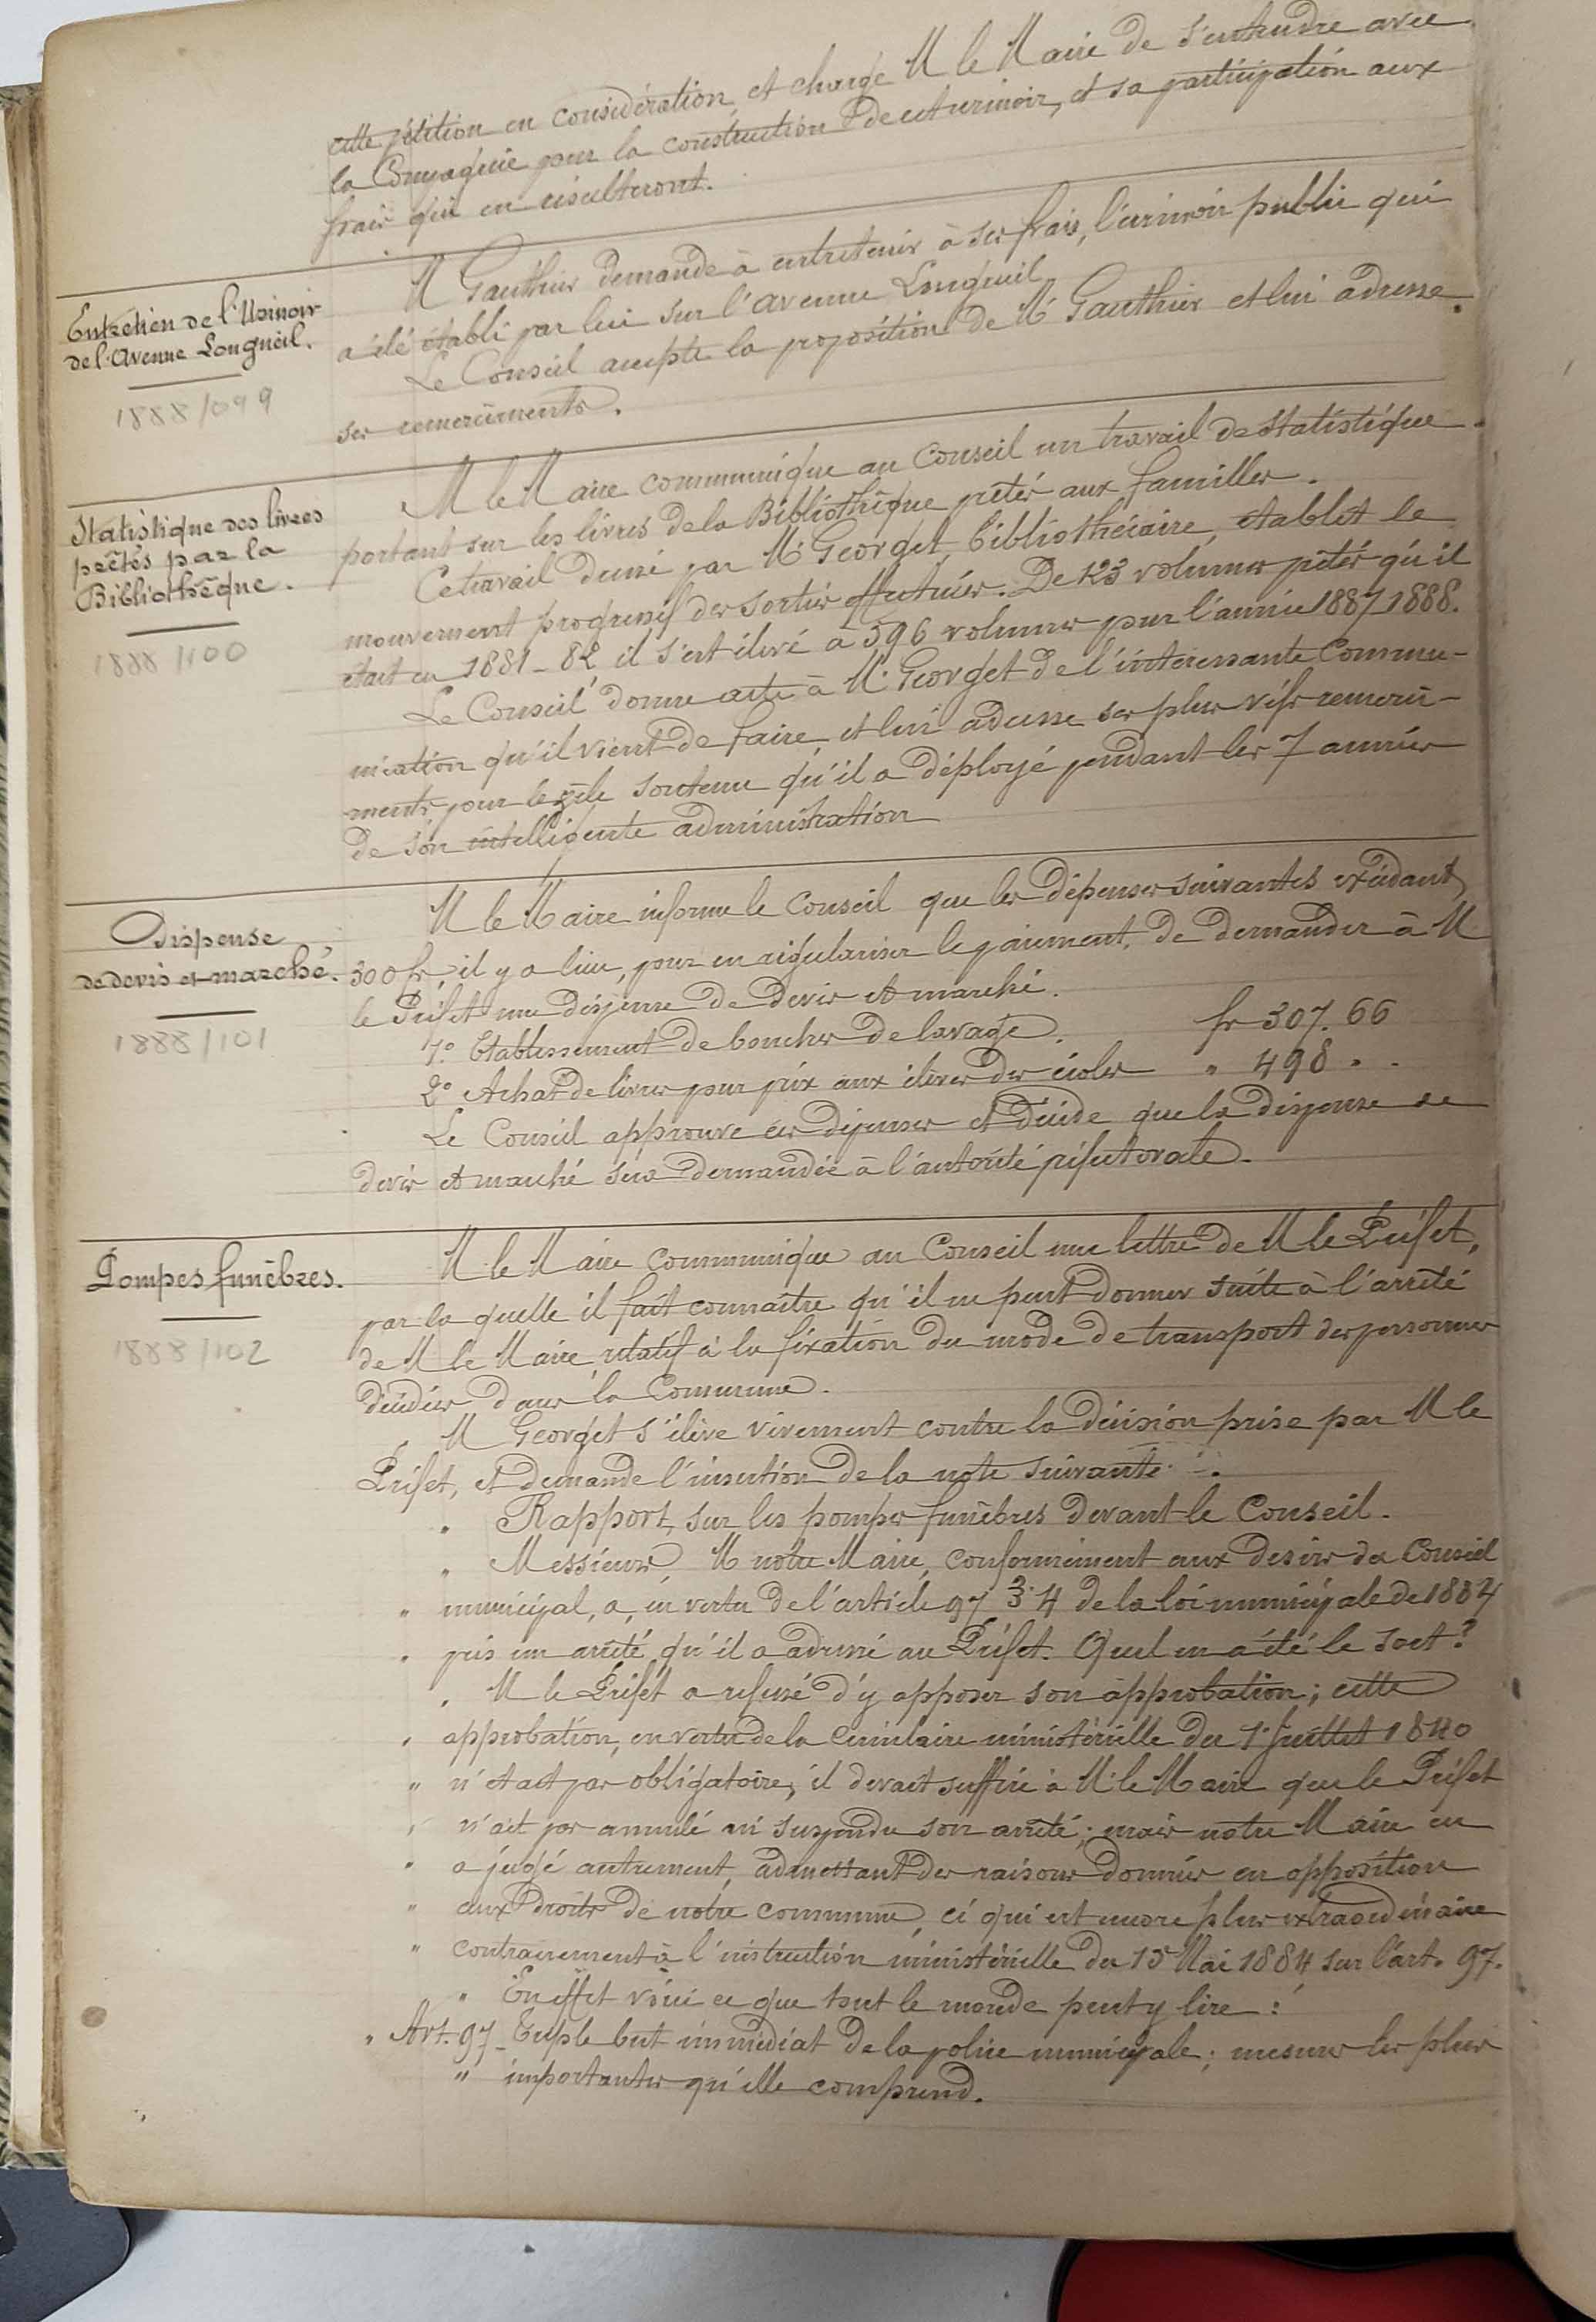 cette pétition en considération, et charge M le Maire de s'entendre avec
la Compagnie pour la construction de cet urinoir, et sa participation aux
frais qui en résulteront.
Entretien de l'Urinoir
de l'Avenue Longueil.
1888/099
M Gauthier demande à entretenir à ses frais, l'urinoir public qui
a été établi par lui sur l'avenue Longueil
Le Conseil accepte la proposition de M Gauthier et lui adresse
ses remerciments.
Statistique des livres
prêtés par la
Bibliothèque.
1888/100
M le Maire communique au Conseil un travail de statistique
portant sur les livres de la Bibliothèque prêtés aux familles.
Ce travail dressé par M. Georget, bibliothécaire, établit le
mouvement progressif des sorties effectuées. De 123 volumes prêtés qu'il
était en 1881-82 il s'est élevé à 596 volumes pour l'année 1887 1888.
Le Conseil donne acte à M. Georget de l'intéressante Commu-
nication qu'il vient de faire, et lui adresse ses plus vifs remercî-
ments pour le zèle soutenu qu'il a déployé pendant les 7 années
de son intelligente administration
Dispense
de devis et marché.
1888/101
M le Maire informe le Conseil que les dépenses suivantes excédant
300 fr, il y a lieu, pour en régulariser le paiement, de demander à M
le Préfet une dispense de devis et marché.
1º Etablissement de bouches de lavage. fr 307.66
2º Achat de livres pour prix aux élèves des écoles " 498 " "
Le Conseil approuve ces dépenses et décide que la dispense de
devis et marché sera demandée à l'autorité préfectorale.
Pompes funèbres.
1888/102
M le Maire communique au Conseil une lettre de M le Préfet,
par la quelle il fait connaître qu'il ne peut donner suite à l'arrêté
de M le Maire relatif à la fixation du mode de transport des personnes
décédées dans la Commune.
M Georget s'élève vivement contre la décision prise par M le
Préfet, et demande l'insertion de la note suivante :
" Rapport, sur les pompes funèbres devant le Conseil.
" Messieurs, M notre Maire, conformément aux desirs du Conseil
" municipal, a, en vertu de l'article 97 3·4 de la loi municipale de 1884
" pris un arrêté qu'il a adressé au Préfet. Quel en a été le sort?
" M le Préfet a refusé d'y apposer son approbation; cette
" approbation, en vertu de la circulaire ministérielle du 1er Juillet 1840
" n'était pas obligatoire, il devait suffire à M. le Maire que le Préfet
" n'ait pas annulé ni suspendu son arrêté; mais notre Maire en
" a jugé autrement, admettant des raisons données en opposition
" aux droits de notre commune, ce qui est encore plus extraordinaire
" contrairement à l'instruction ministérielle du 15 Mai 1884 sur l'art. 97.
" En effet voici ce que tout le monde peut y lire :
" Art. 97_ Triple but immédiat de la police municipale; mesures les plus
" importantes qu'elle comprend.